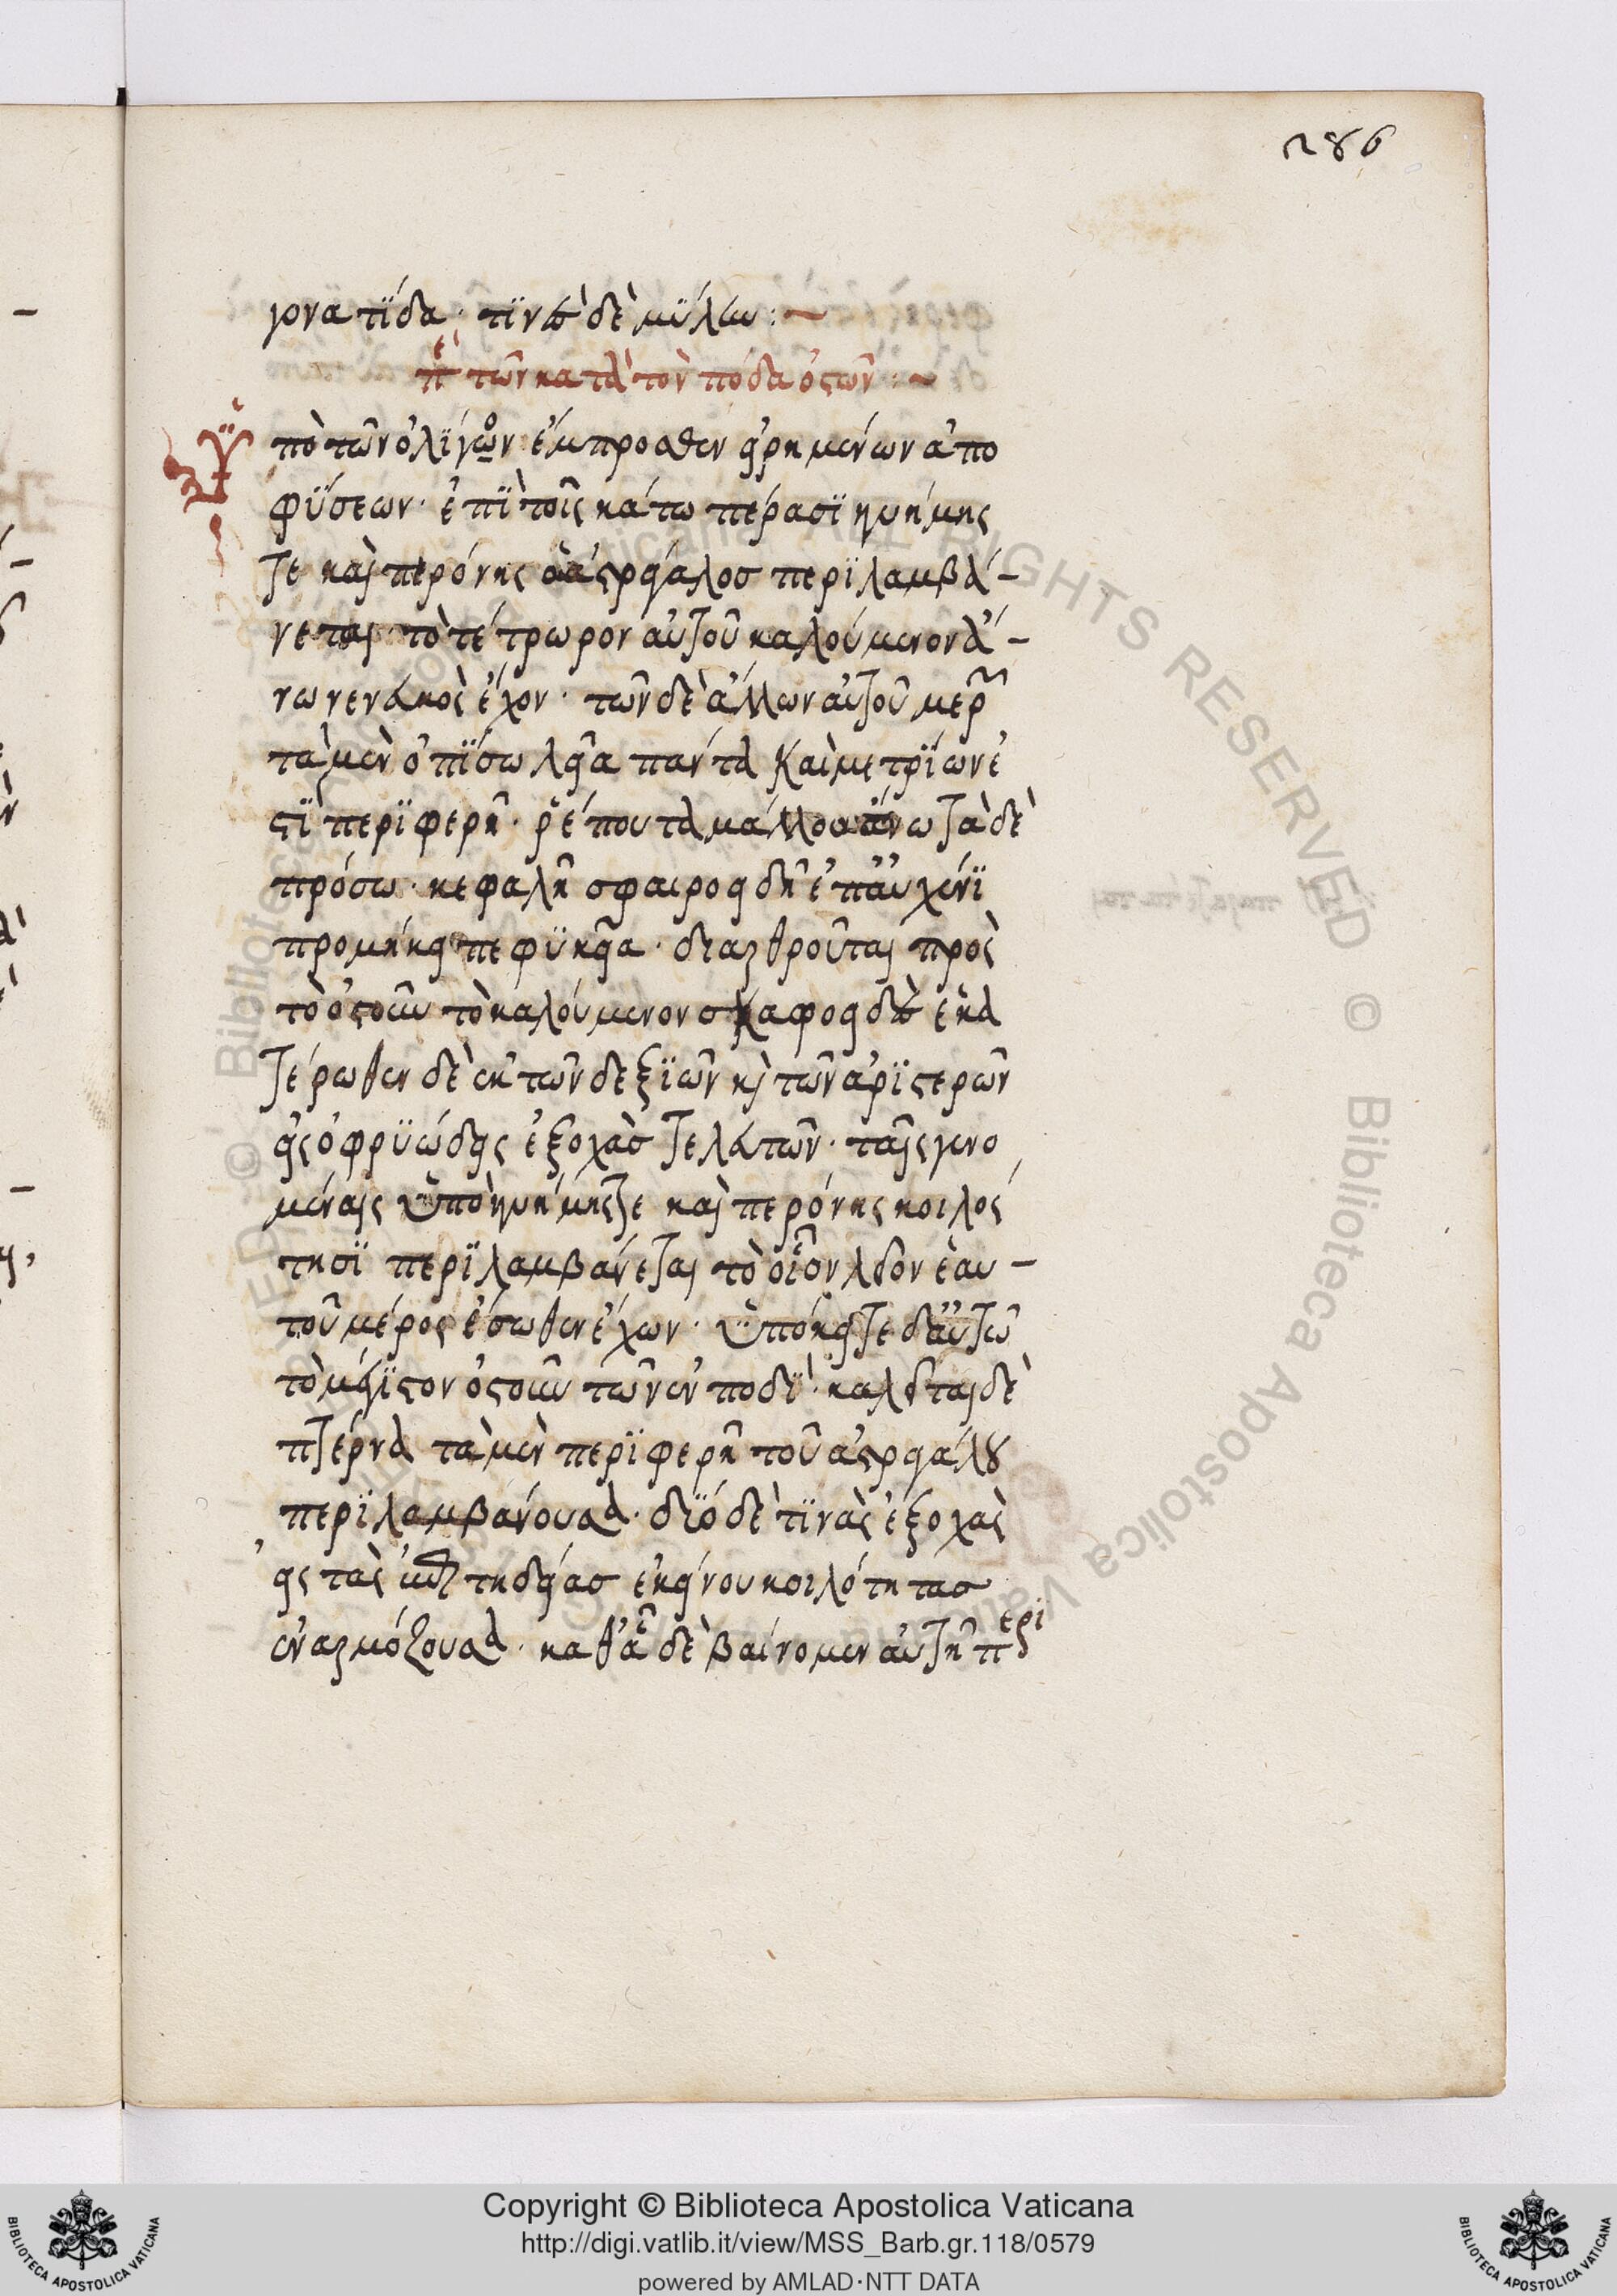 286
γονατϊδα· τϊνὲς δὲ μϋλην :~
πε τῶν κατὰ τὸν πόδα ὀστῶν :~
Ϋπὸ τῶν ὀλϊγον ἔμπροσθεν εἰρημένων ἀπο
φϋσεων· ἐπϊ τοῖς κάτω πέρασϊ κνήμης
τε καὶ περόνης ὁ ἀστράγαλοσ περϊλαμβά–
νεται τὸ τέτρωρον αὐτοῦ καλούμενον ἄ–
νω νενευκὸς ἔχον· τῶν δὲ ἄλλων αὐτοῦ μερῶν
τὰ μὲν ὀπϊσω λεῖα παντα καὶ μετρϊων ἐ
στϊ περϊφερῆ· ῥέπουτα μάλλον ἄνω τὰ δὲ
πρόσω· κεφαλῆ σφαιροειδῆ ἐπ αὐχένϊ
προμήκει πεφϋκεῖα· διαρθροῦται πρὸς
τὸ ὀστοῦν τὸ καλούμενον σκαφοειδὲς ἑκα
τέρωθεν δὲ ἐκ τῶν δεξϊῶν κὶ τῶν ἀρϊστερῶν
εἰς ὀφρϋώδεις ἐξοχὰσ τελευτῶν· ταῖς γενο
μέναις ϋπὸ κνήμης τε καὶ περόνης κοιλό
τησϊ περϊλαμβάνεται τὸ οἷον λεῖον ἑαυ–
τοῦ μέρος ἔσωθεν ἔχων· ϋπόκειται δ αὐτῶ
τὸ μέγϊστον ὀστοῦν τῶν ἐν ποδϊ· καλεῖται δὲ
πτέρνα τὰ μὲν περϊφερῆ τοῦ ἀστραγάλου
περϊλαμβάνουσα· δϋο δὲ τϊνὰς ἐξοχὰς
εἰς τὰς ἐπιτηδείασ ἐκείνου κοιλότητασ
ἐναρμόζουσα· καθ ἃ δὲ βαίνομεν αὐτῆ περι
Copyright © Biblioteca Apostolica Vaticana
http://digi.vatlib.it/view/MSS_Barb.gr.118/0579
powered by AMLAD·NTT DATA
BIBLIOTECA APOSTOLICA VATICANA
BIBLIOTECA APOSTOLICA VATICANA